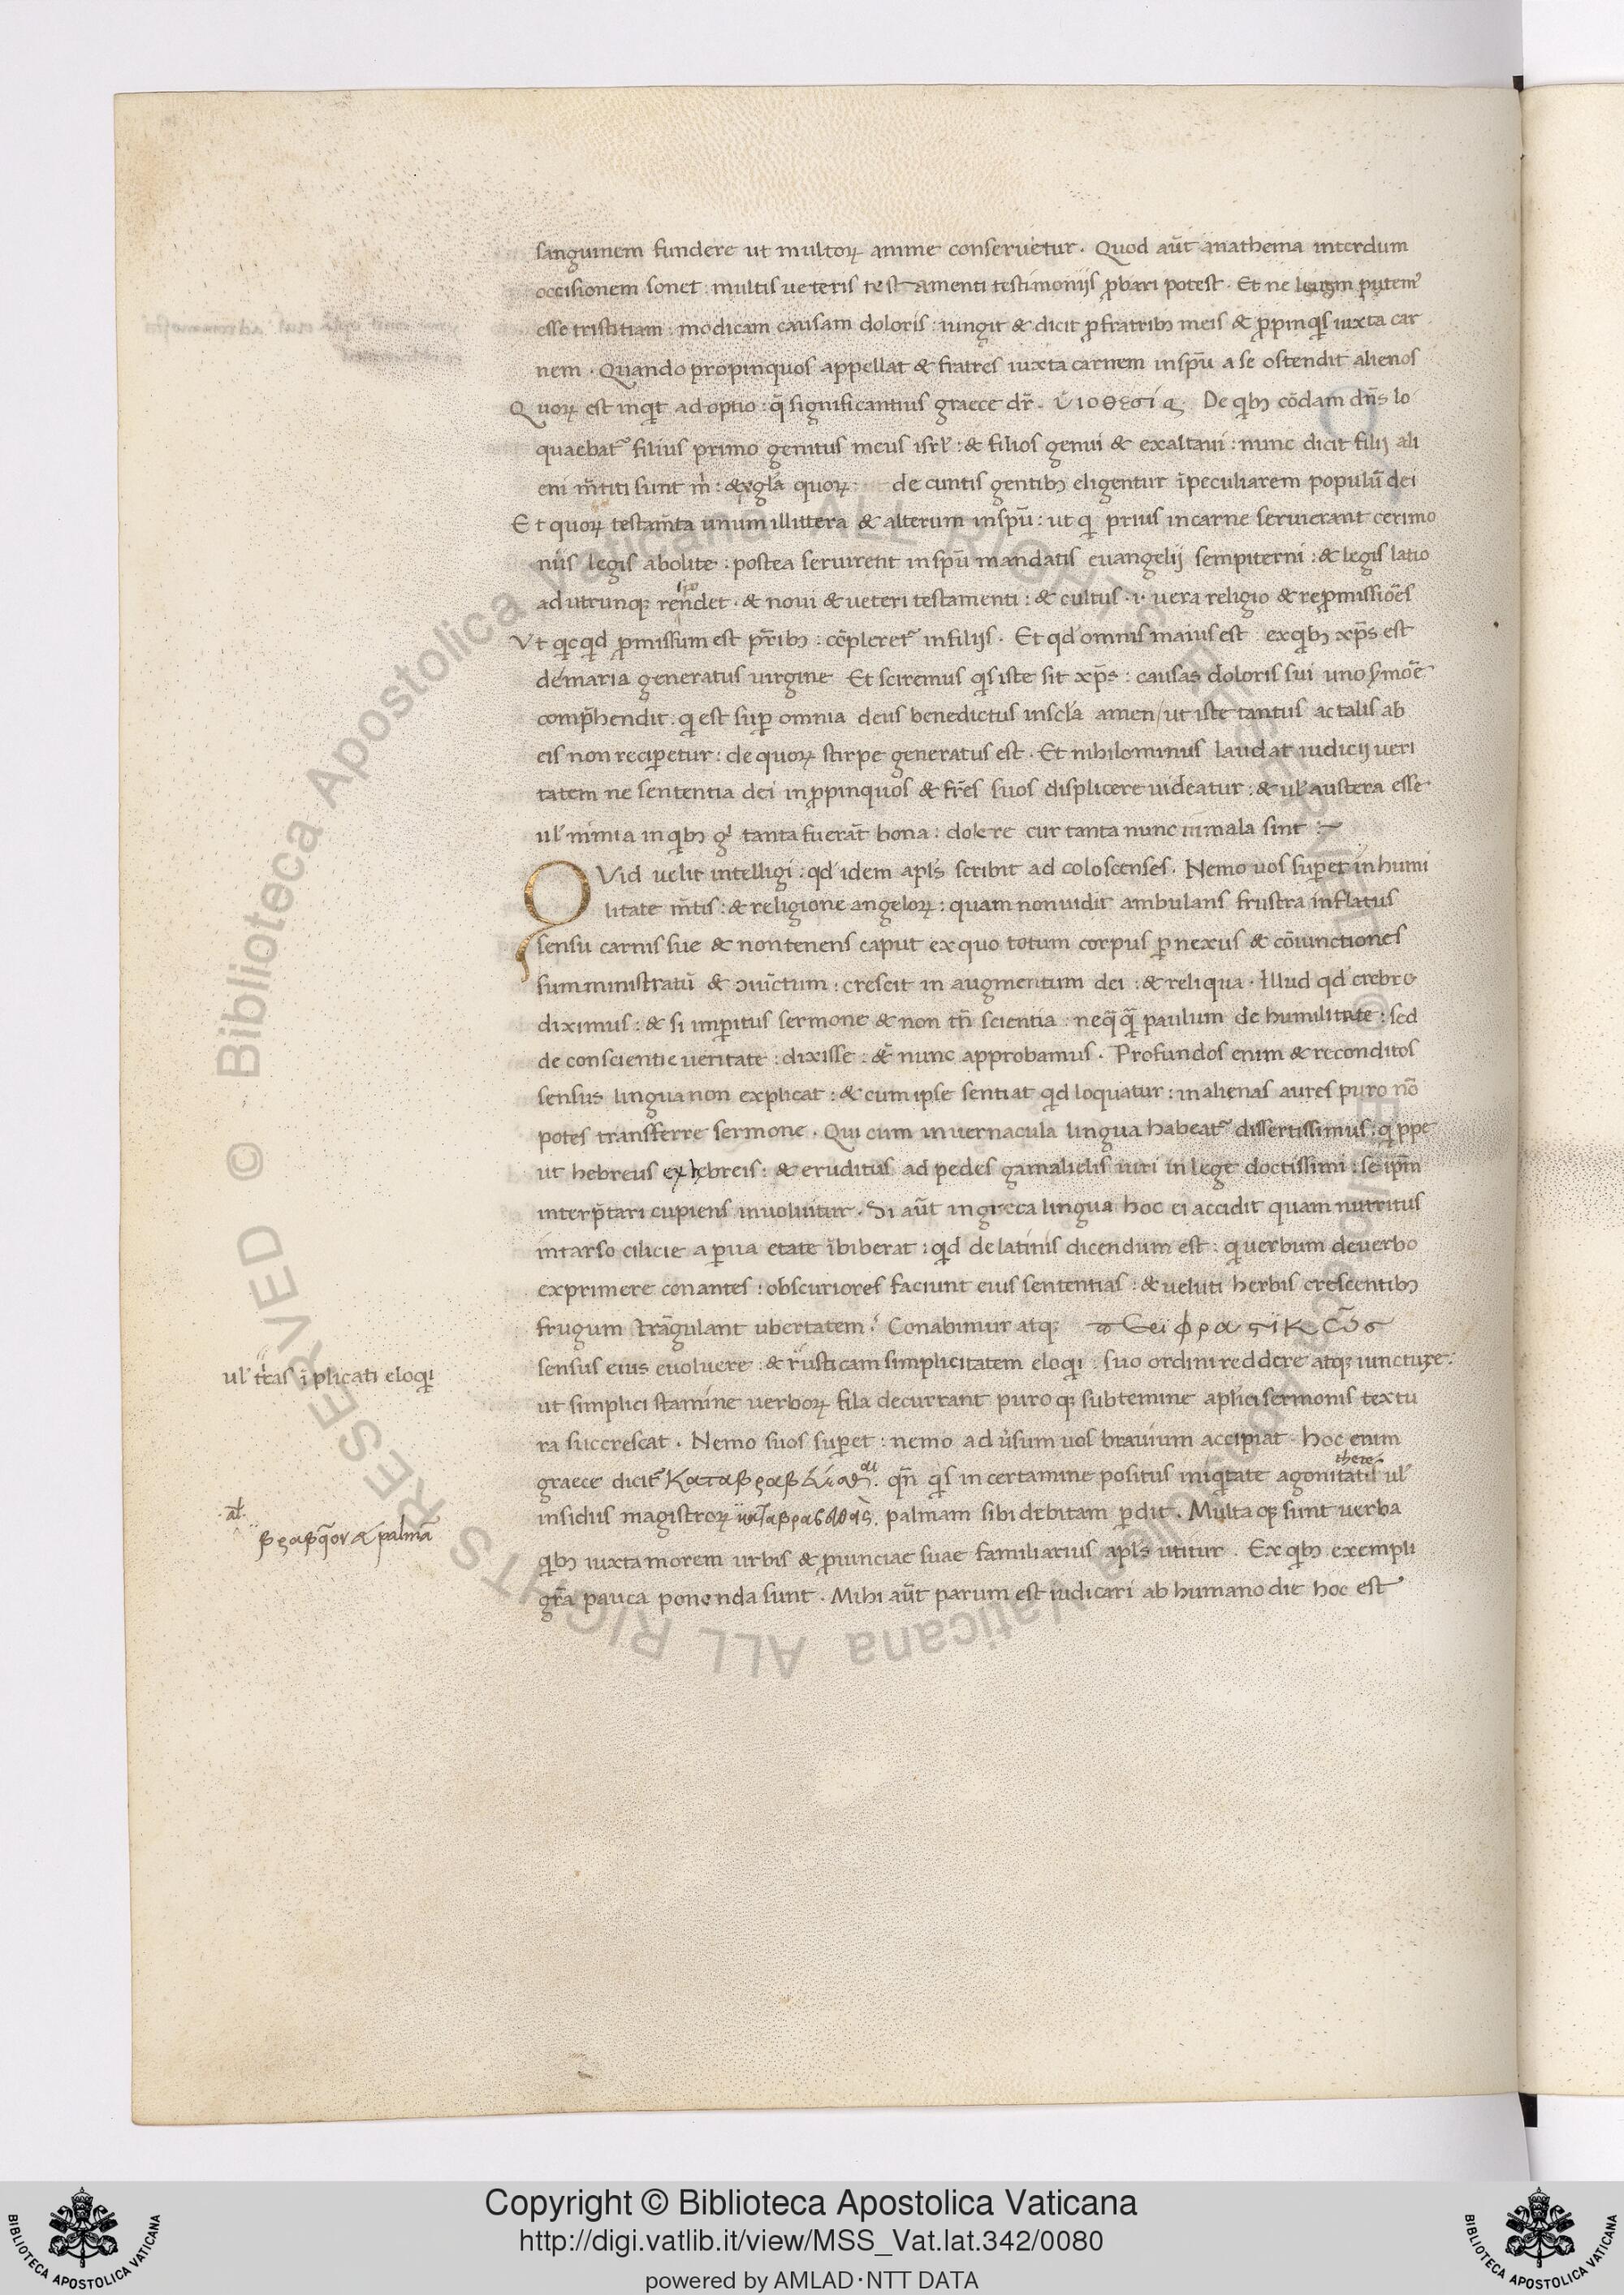 sanguinem fundere ut multoꝝ anime conseruetur. Quod aūt anathema interdum
occisionem sonet: multis ueteris testamenti testimonijs ꝓbari potest. Et ne leuem putem᾽
esse tristitiam: modicam causam doloris: iungit & dicit ꝓ fratribꝫ meis & ꝓpinqis iuxta car
nem. Quando propinquos appellat & fratres iuxta carnem in spū a se ostendit alienos
Quoꝝ est inqit adoptio: q̄ significantius graece dr̄. ὑιοθεσία. De qibꝫ q̄dam dn̄s lo
quaebat᾽ filius primo genitus meus isrl̄: & filios genui & exaltaui: nunc dicit filij ali
eni m̄titi sunt m̄: & gl̄a quoꝝ de cuntis gentibꝫ eligentur ī peculiarem populū dei
Et quoꝝ testam̄ta unum illittera & alterum in spū: ut qi prius in carne seruierant cerimo
niis legis abolite: postea seruirent in spū mandatis euangelij sempiterni: & legis latio
ad utrunqꝫ rendet. & noui & ueteri testamenti: & cultus .i. uera religio & repromissiōes
Vt qicqid ꝓmissum est pr̄ibꝫ: cōpleret᾽ in filijs. Et qd̓ omnis maius est ex qibꝫ xp̄s est
de maria generatus uirgine Et sciremus qis iste sit xp̄s: causas doloris sui uno
comp̄hendit. qi est suꝑ omnia deus benedictus in scl̄a amen/ ut iste tantus ac talis ab
eis non reciꝑetur: de quoꝝ stirpe generatus est. Et nihilominus laudat iudicij ueri
tatem ne sententia dei in ꝓpinquos & fr̄es suos displicere uideatur: & ul̓ austera esse
ul̓ nimia in qibꝫ gͥ tanta fuerāt bona: dolere cur tanta nunc in mala sint
QVid uelit intelligi: qd̓ idem apl̄s scribit ad coloscenses. Nemo uos suꝑet in humi
litate m̄tis: & religione angeloꝝ: quam non uidit ambulans frustra inflatus
sensu carnis sue & non tenens caput ex quo totum corpus ꝑ nexus & cōiunctiones
sumministratū & ɔiūctum: crescit in augmentum dei: & reliqua. Illud qd̓ crebro
diximus: & si imꝑitus sermone & non tn̄ scientia neq̄q̄ paulum de humilitate: sed
de conscientie ueritate: dixisse: & nunc approbamus. Profundos enim & reconditos
sensus lingua non explicat: & cum ipse sentiat qid loquatur: in alienas aures puro nō
potes transferre sermone. Qui cum in uernacula lingua habeat᾽ dissertissimus: qippe
ut hebreus ex hebreis: & eruditus ad pedes gamalielis uiri in lege doctissimi: se ip̄m
interp̄tari cupiens inuoluitur. Si aūt in greca lingua hoc ei accidit quam nutritus
in tarso cilicie a ꝑua etate ībiberat: qid de latinis dicendum est: qi uerbum de uerbo
exprimere conantes: obscuriores faciunt eius sententias: & veluti herbis crescentibꝫ
frugum strāgulant ubertatem. Conabimur atqꝫ
sensus eius euoluere: & rusticam simplicitatem eloqi: suo ordini reddere atqꝫ iuncture:
ul̓ tͥcas īplicati eloqi
ut simplici stamine uerboꝝ fila decurrant puro qꝫ subtemine apl̄ici sermonis textu
ra succrescat. Nemo suos suꝑet: nemo aduͥsum uos brauium accipiat. hoc enim
graece dicit᾽ qn̄ qis in certamine positus iniqitate agonitatis ul̓
there
insidiis magistroꝝ palmam sibi debitam ꝑdit. Multa qꝫ sunt uerba
al̓
& palmā
qibꝫ iuxta morem urbis & ꝓuinciae suae familiarius apl̄s utitur. Ex qibꝫ exempli
gr̄a pauca ponenda sunt. Mihi aūt parum est iudicari ab humano die hoc est
Copyright © Biblioteca Apostolica Vaticana
http://digi.vatlib.it/view/MSS_Vat.lat.342/0080
powered by AMLAD·NTT DATA
BIBLIOTECA APOSTOLICA VATICANA
BIBLIOTECA APOSTOLICA VATICANA
© Biblioteca Apostolica Vaticana ALL RIGHTS RESERVED
© Biblioteca Apostolica Vaticana ALL RIGHTS RESERVED